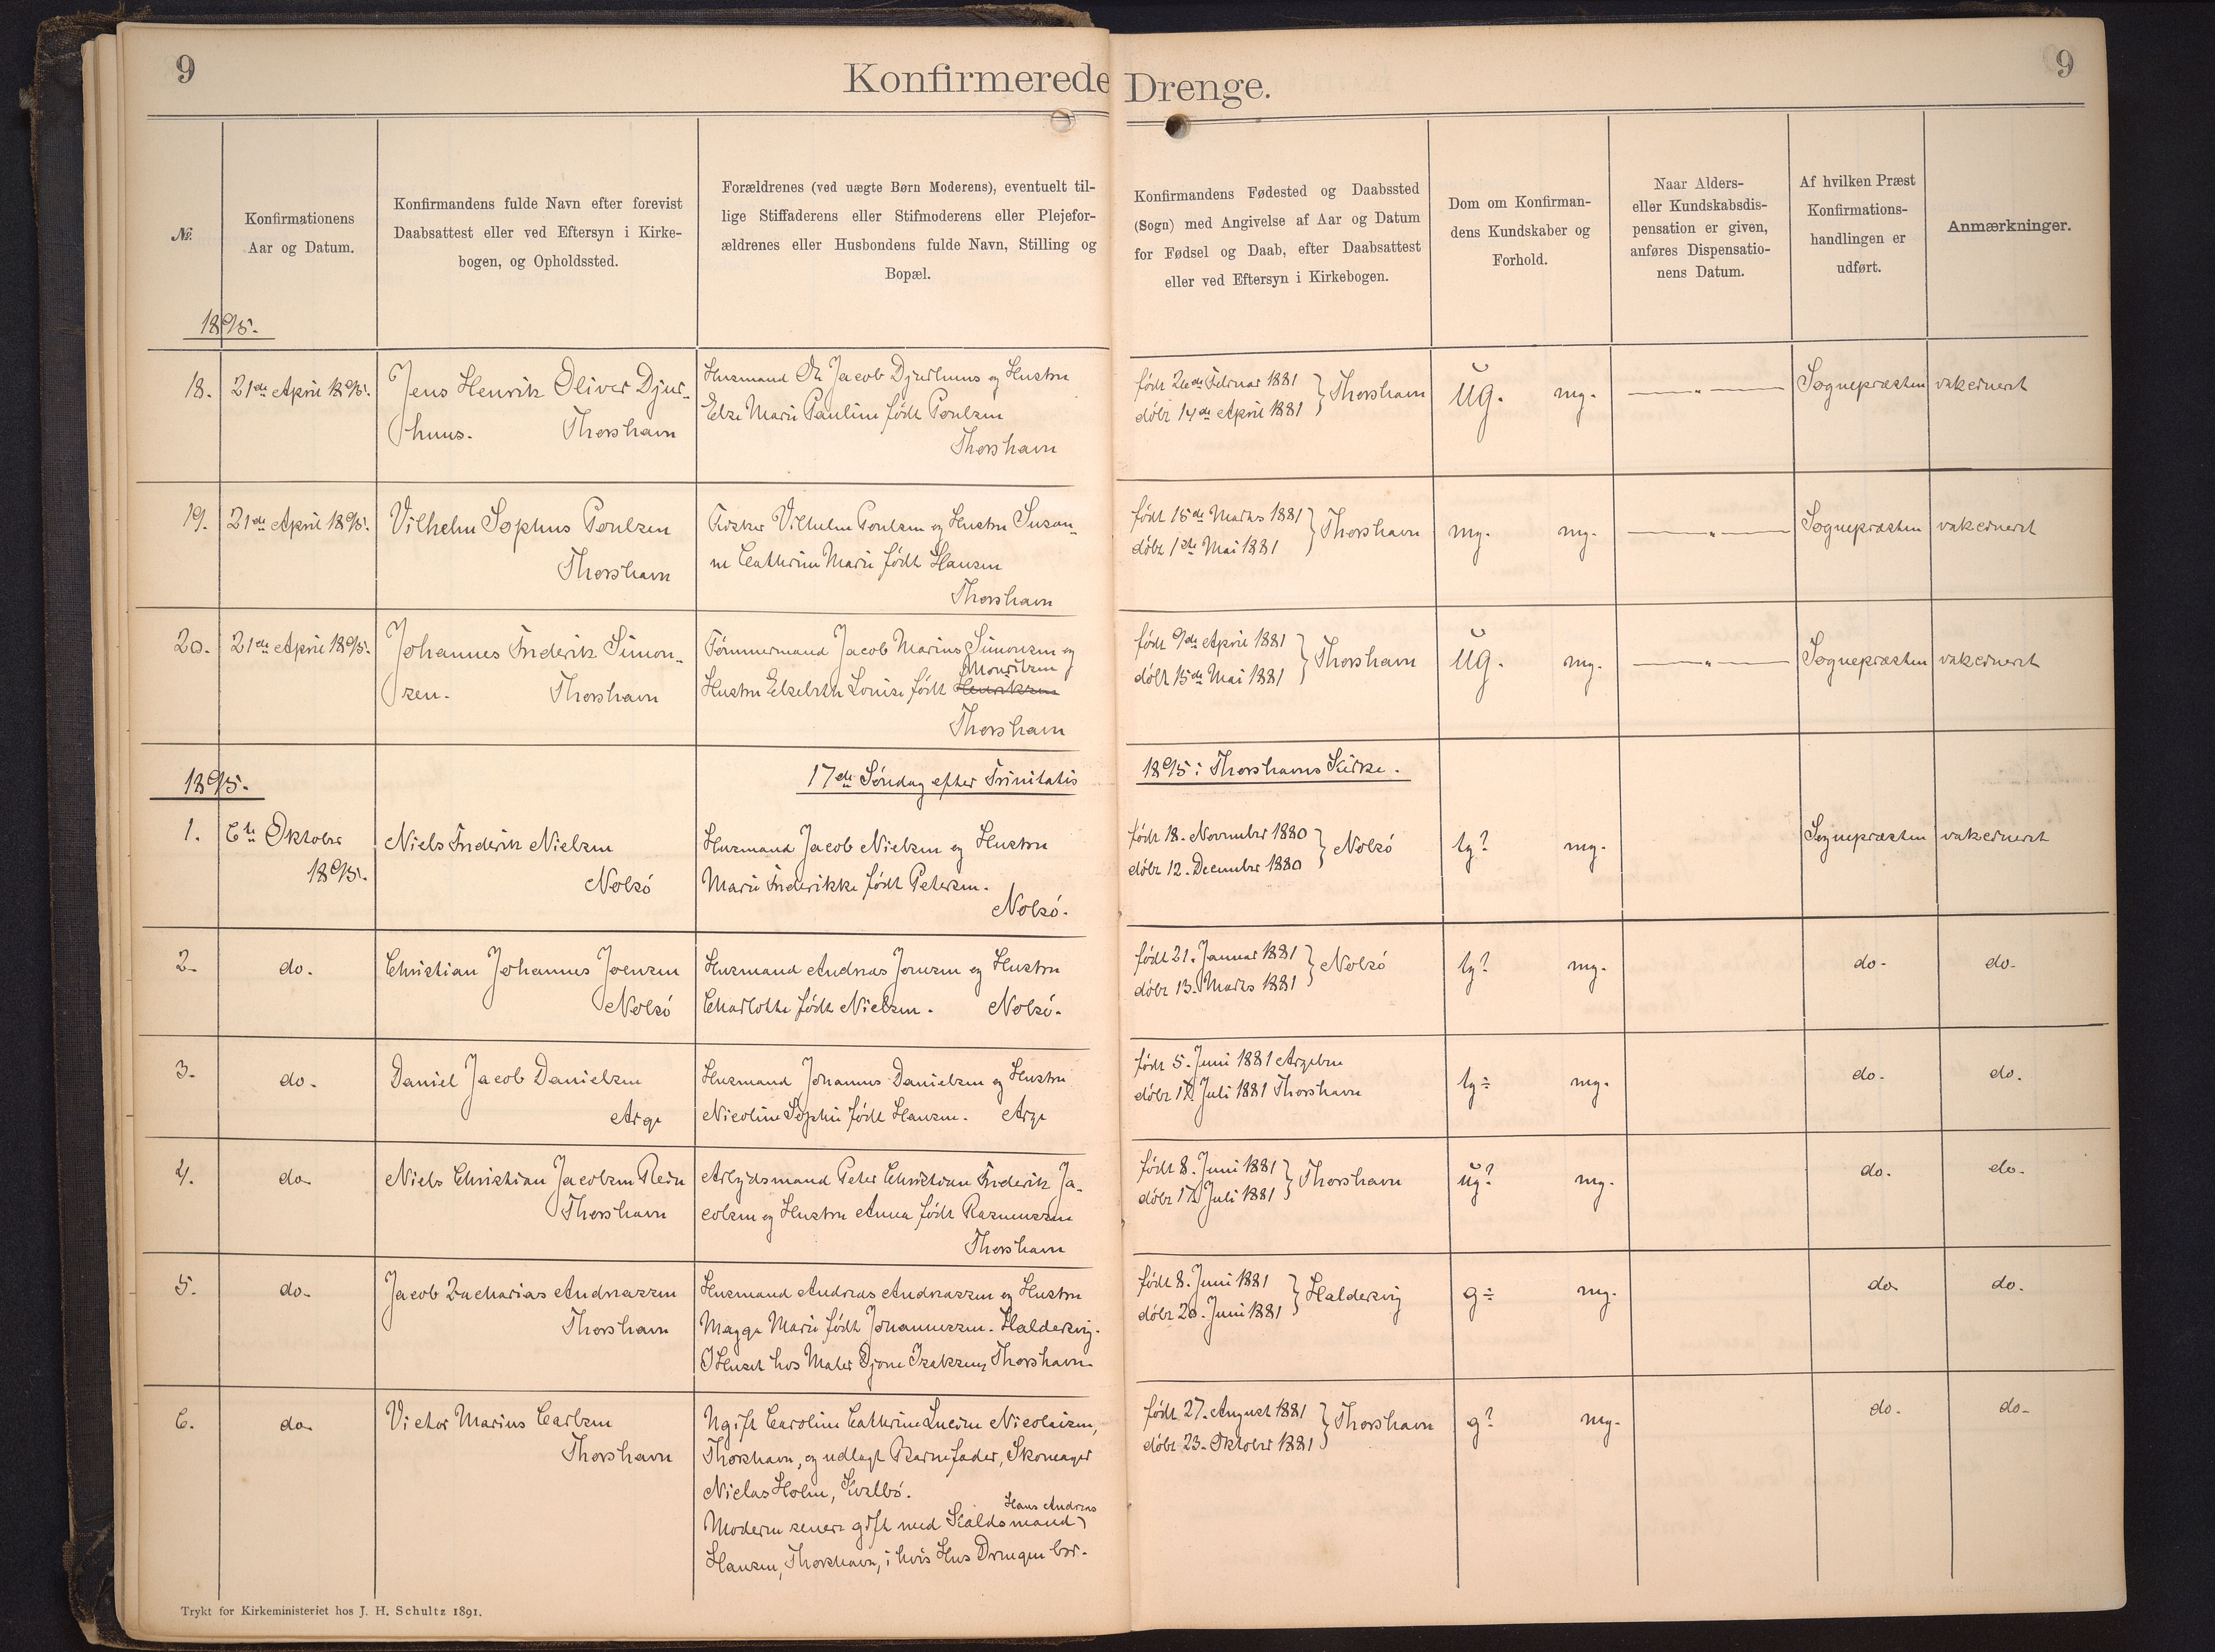 9
Konfirmerede Drenge.
9
№.
Konfirmationens
Aar og Datum.
Konfirmandens fulde Navn efter forevist
Daabsattest eller ved Eftersyn i Kirke-
bogen, og Opholdssted.
Forældrenes (ved uægte Børn Moderens), eventuelt til-
lige Stiffaderens eller Stifmoderens eller Plejefor-
ældrenes eller Husbondens fulde Navn, Stilling og
Bopæl.
Konfirmandens Fødested og Daabssted
(Sogn) med Angivelse af Aar og Datum
for Fødsel og Daab, efter Daabsattest
eller ved Eftersyn i Kirkebogen.
Dom om Konfirman-
dens Kundskaber og
Forhold.
Naar Alders-
eller Kundskabsdis-
pensation er given,
anføres Dispensatio-
nens Datum.
Af hvilken Præst
Konfirmations-
handlingen er
udført.
Anmærkninger.
1895.
18.
21de April 1895.
Jens Henrik Oliver Djur-
huus. Thorshavn
Husmand Jacob Djurhuus og Hustru
Else Marie Pauline født Poulsen
Thorshavn
født 26de Februar 1881
døbt 14de April 1881 } Thorshavn
ug. mg.
— " —
Sognepræsten
vakcineret
19.
21de April 1895.
Vilhelm Sophus Poulsen
Thorshavn
Fisker Vilhelm Poulsen og Hustru Susan-
ne Cathrine Marie født Hansen
Thorshavn
født 15de Marts 1881
døbt 1ste Mai 1881 } Thorshavn
mg. mg.
— " —
Sognepræsten
vakcineret
20.
21de April 1895.
Johannes Frederik Simon-
sen. Thorshavn
Tømmermand Jacob Marius Simonsen og
Mouritsen
Hustru Elsebeth Louise født Henriksen
Thorshavn
født 9de April 1881
døbt 15de Mai 1881 } Thorshavn
ug. mg.
— " —
Sognepræsten
vakcineret
1895.
17de Søndag efter Trinitatis 1895 i Thorshavns Kirke.
1.
6te Oktober
1895.
Niels Frederik Nielsen
Nolsö
Husmand Jacob Nielsen og Hustru
Marie Frederikke født Petersen.
Nolsö.
født 18. November 1880
døbt 12. December 1880 } Nolsö
tg? mg.
Sognepræsten
vakcineret
2.
do.
Christian Johannes Joensen
Nolsö
Husmand Andreas Joensen og Hustru
Charlotte født Nielsen. Nolsö.
født 21. Januar 1881
døbt 13. Marts 1881 } Nolsö
tg? mg.
do.
do.
3.
do.
Daniel Jacob Danielsen
Arge
Husmand Johannes Danielsen og Hustru
Nicoline Sophie født Hansen. Arge
født 5. Juni 1881 Argebæn
døbt 17. Juli 1881 Thorshavn
tg÷ mg.
do.
do.
4.
do.
Niels Christian Jacobsen Rein
Thorshavn
Arbejdsmand Peter Christian Frederik Ja-
cobsen og Hustru Anna født Rasmussen
Thorshavn
født 8. Juni 1881
døbt 17. Juli 1881 } Thorshavn
ug? mg.
do.
do.
5.
do.
Jacob Zacharias Andreassen
Thorshavn
Husmand Andreas Andreassen og Hustru
Magga Marie født Johannessen. Haldersvig.
I Huset hos Maler Djone Isaksen, Thorshavn
født 8. Juni 1881
døbt 20. Juni 1881 } Haldersvig
g÷ mg.
do.
do.
6.
do.
Victor Marius Carlsen
Thorshavn
Ugift Caroline Cathrine Lucie Nicolaisen,
Thorshavn, og udlagt Barnefader, Skomager
Niclas Holm, Kvalbö.
Hans Andreas
Moderen senere gift med Kaldsmand
Hansen, Thorshavn, i hvis Hus Drengen bor.
født 27. August 1881
døbt 23. Oktober 1881 } Thorshavn
g? mg.
do.
do.
Trykt for Kirkeministeriet hos J. H. Schultz 1891.